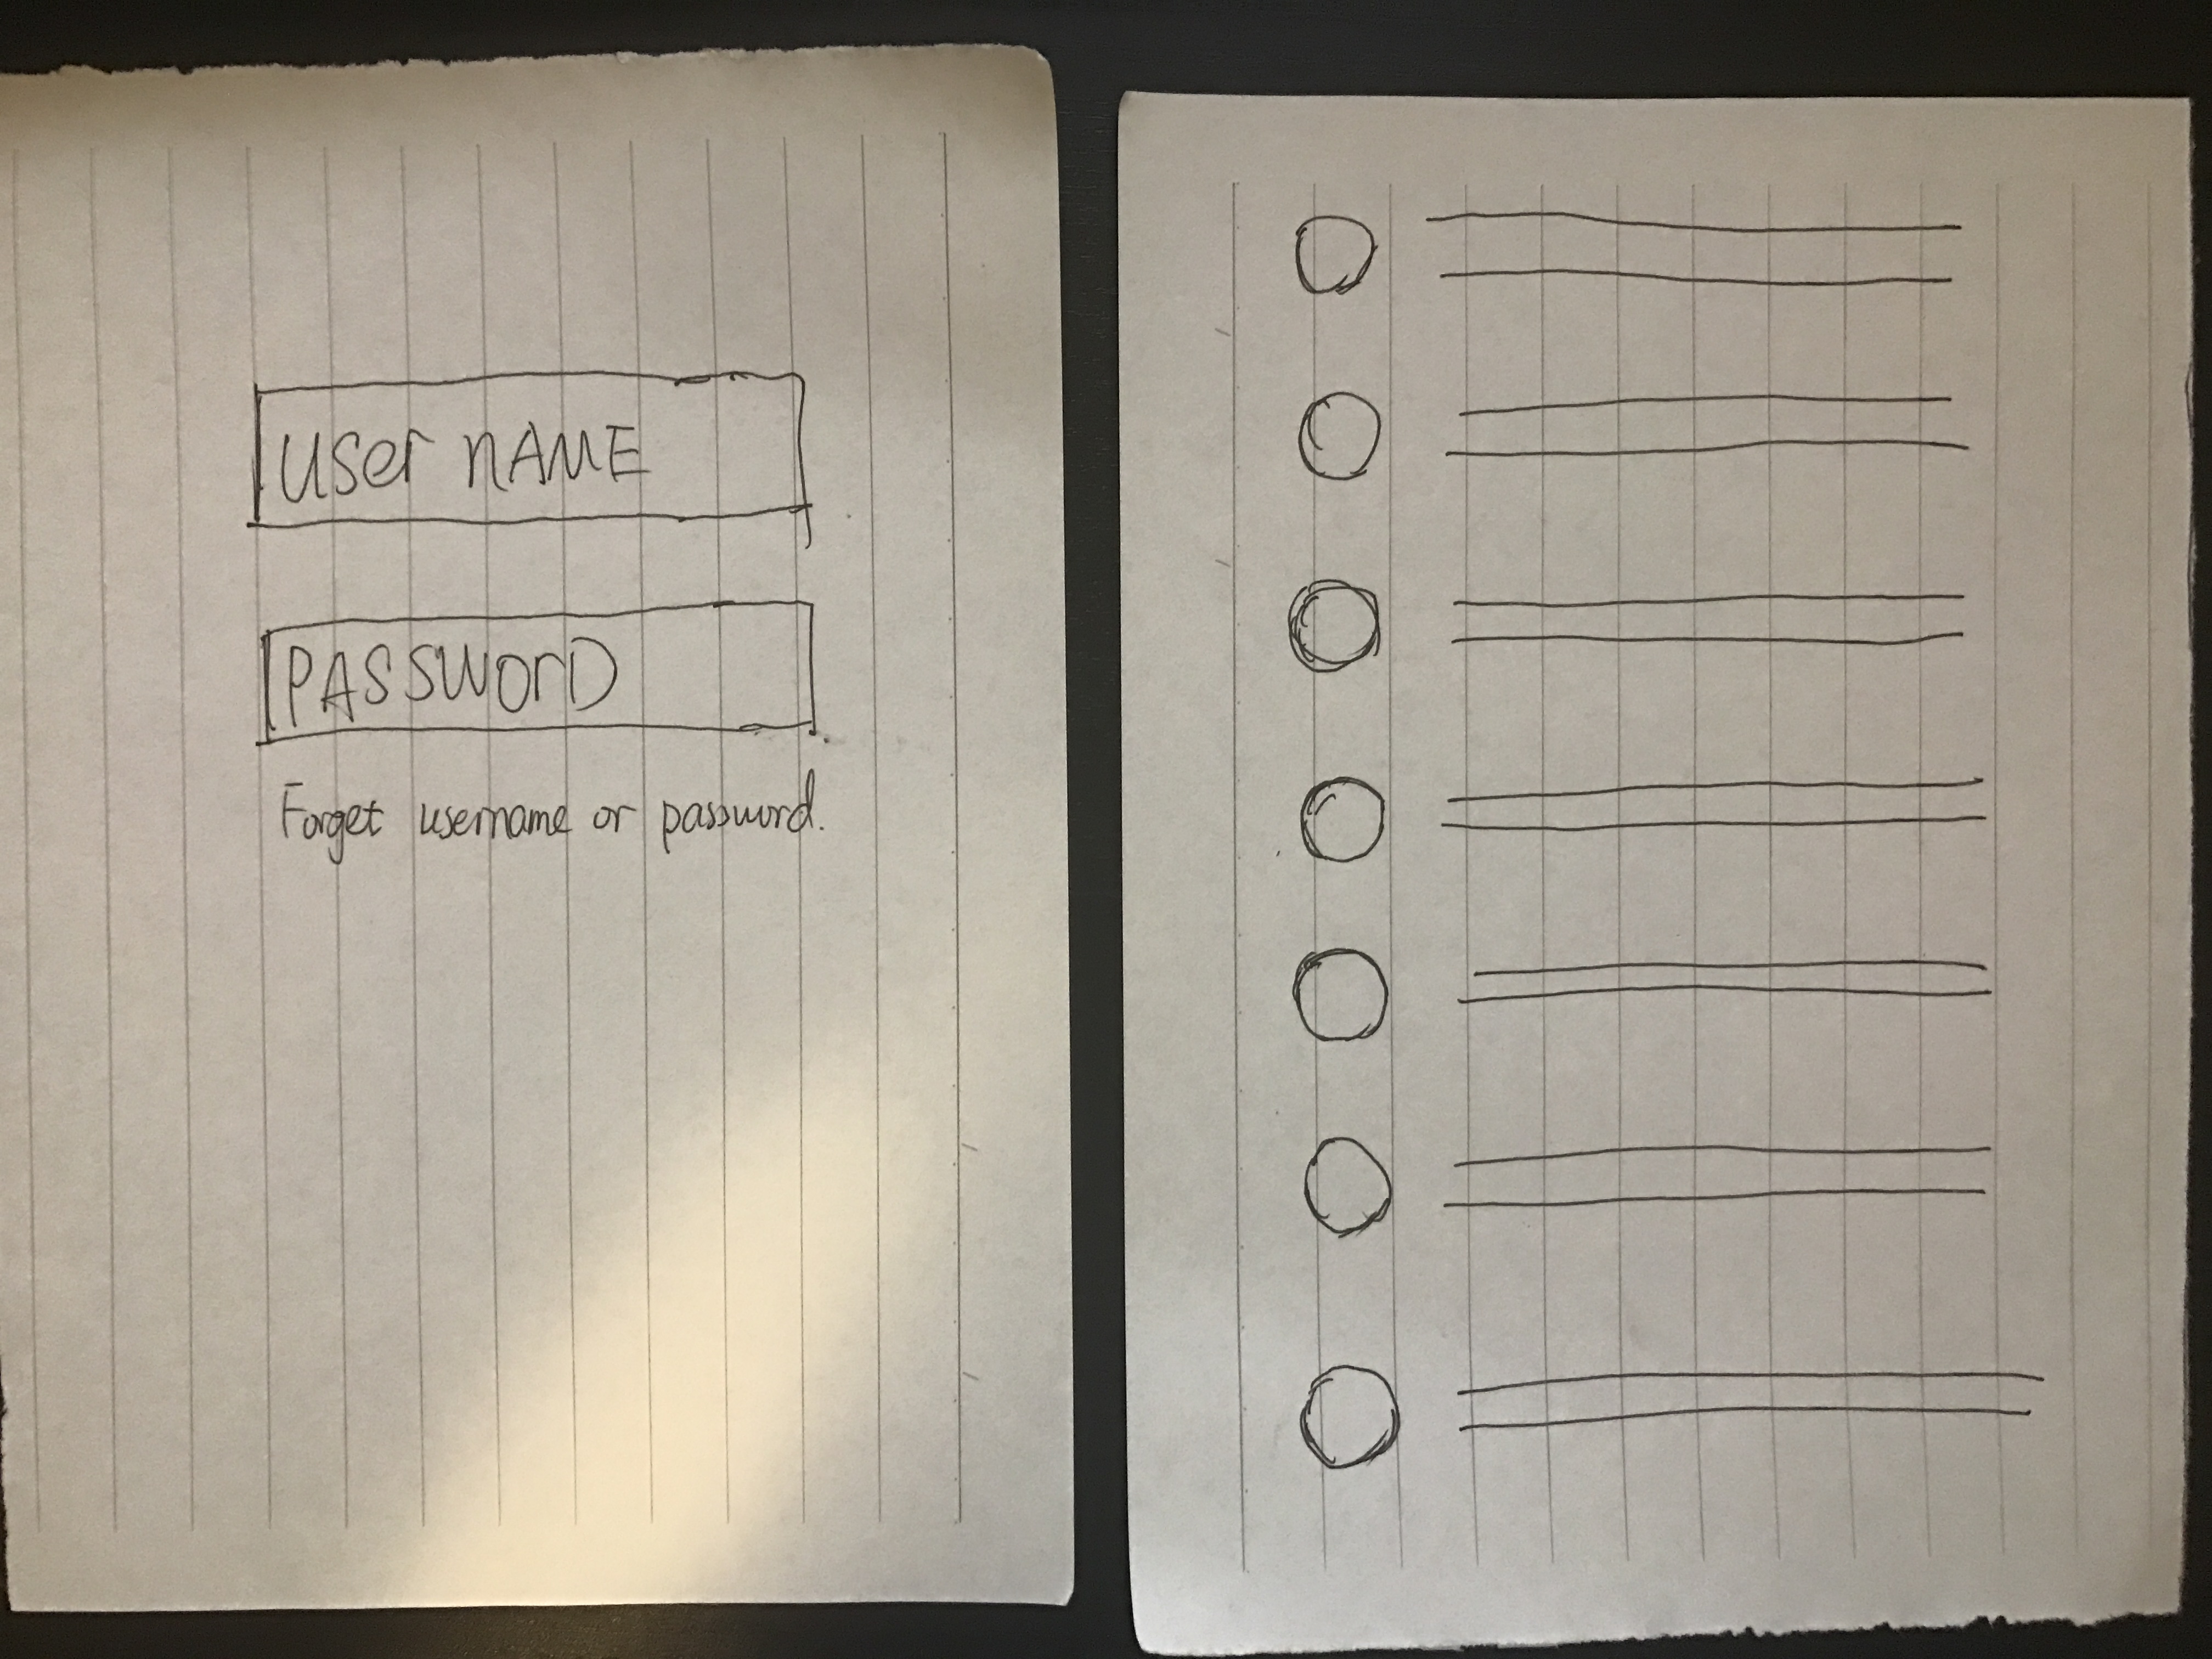 USer nAME
PASSWOrD
Forget username or password.